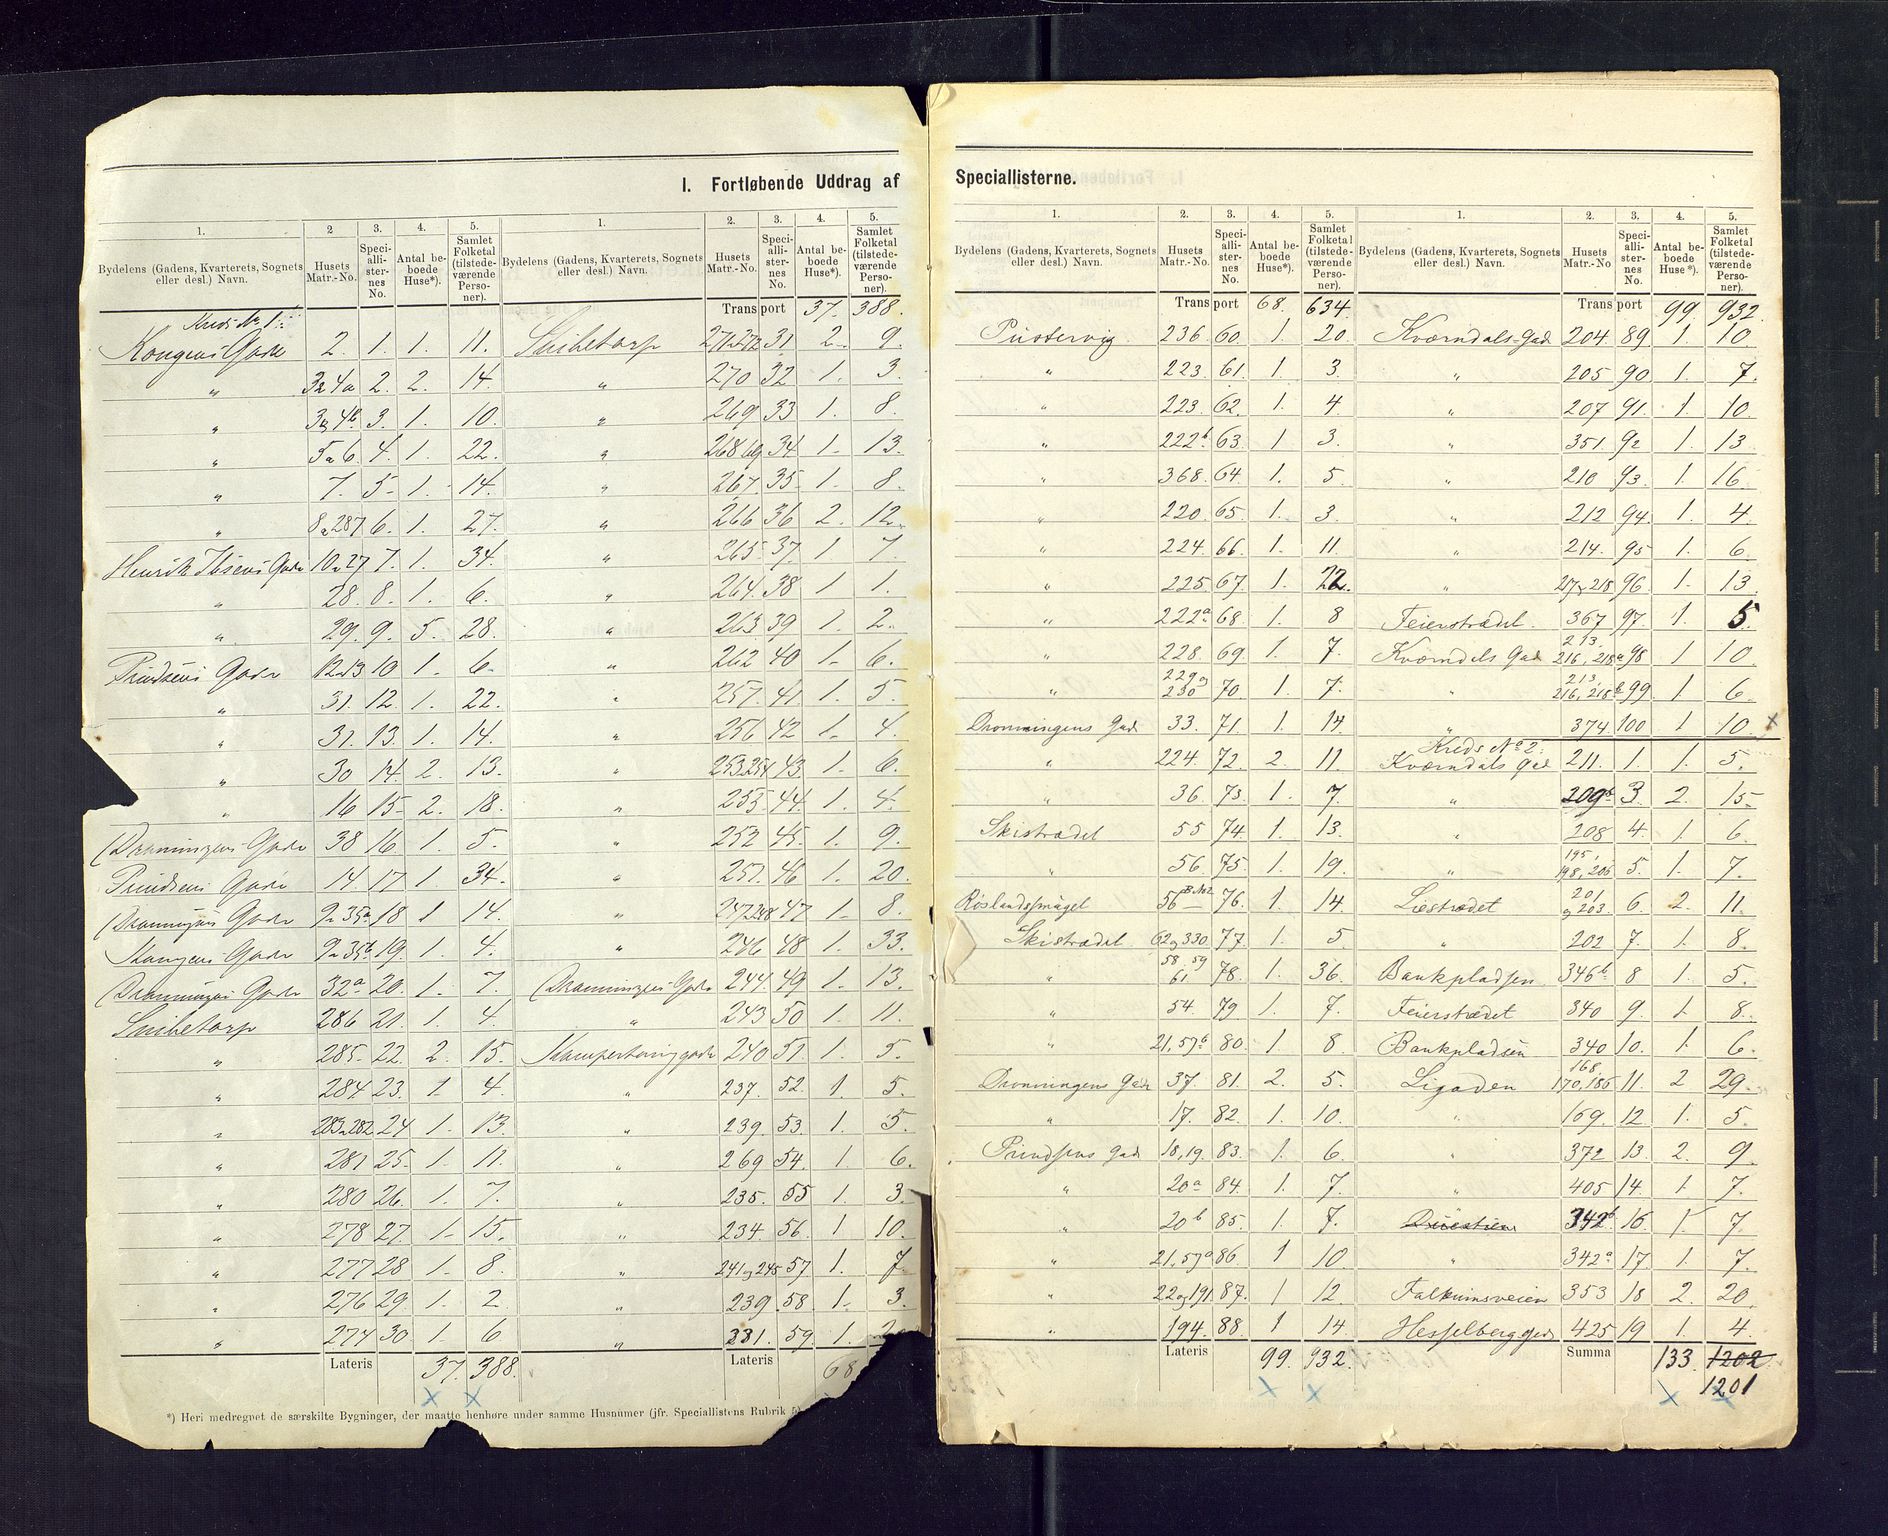 I. Fortløbende Uddrag af Speciallisterne.
1. 2 3. 4. 5. 1. 2. 3. 4. 5.
Bydelens (Gadens, Kvarterets, Sognets eller desl.) Navn. Husets Matr.-No. Speciallisternes No. Antal beboede Huse*). Samlet Folketal (tilstedeværende Personer). Bydelens (Gadens, Kvarterets, Sognets eller desl.) Navn. Husets Matr.-No. Speciallisternes No. Antal beboede Huse*). Samlet Folketal (tilstedeværende Personer).
Kreds No 1.
Kongens Gade 2. 1. 1. 11.
" 3 a 4a 2. 2. 14.
" 3 og 4b. 3. 1. 10.
" 5 a 6. 4. 1. 22.
" 7. 5. 1. 14.
" 8 a 287 6. 1. 27.
Henrik Ibsens Gade 10 a 27 7. 1. 34.
" 28. 8. 1. 6.
" 29. 9. 5. 28.
Prindsens Gade 12 a 13 10 1. 6.
" 31. 12. 1. 22.
" 31. 13. 1. 14.
" 30 14. 2. 13.
" 16 15. 2. 18.
Dronningens Gade 38 16 1. 5.
Prindsens Gade 14. 17 1. 34.
Dronningens Gade 9 a 35a 18 1 14.
Kongens Gade 9 a 35b 19. 1. 4.
Dronningens Gade 32a 20. 1. 7.
Snibetorp 286 21. 1. 4.
" 285 22. 2. 15.
" 284 23. 1. 4
" 283 a 282 24 1. 13.
" 281 25. 1. 11.
" 280 26. 1. 7.
" 278 27. 1. 15.
" 277 28 1. 8.
" 276 29. 1. 2.
" 274 30 1. 6
Lateris 37. 388.
Transport 37. 388.
Snibetorp 271 a 272 31 2. 9.
" 270 32 1. 3.
" 269 33 1. 8.
" 268 69 34 1. 13.
" 267. 35 1. 8.
" 266 36 2. 12.
" 265 37. 1 7.
" 264. 38 1 1.
" 263 39 1. 2.
" 262 40 1. 6.
" 257. 41. 1. 5.
" 256 42 1. 4.
" 253 a 254 43. 1. 6.
" 255 44. 1. 4.
" 252 45. 1. 9.
" 251. 46 1. 20.
" 247 248 47 1. 8.
" 246 48 1. 33.
Dronningens Gade 244. 49 1. 13.
" 243 50 1. 11.
240 51. 1. 5.
" 237. 52. 1. 5.
" 239. 53. 1. 5.
" 269 54. 1. 6.
" 235. 55 1. 3.
" 234. 56. 1. 10.
" 241 og 245 57 1. 7
" 239 58. 1. 3.
" 231. 59 1.
Lateris 68
*) Heri medregnet de særskilte Bygninger, der maatte henhøre under samme Husnumer (jfr. Speciallistens Rubrik 5)
1. 2. 3. 4. 5. 1. 2. 3. 4. 5.
Bydelens (Gadens, Kvarterets, Sognets eller desl.) Navn. Husets Matr.-No. Speciallisternes No. Antal beboede Huse*). Samlet Folketal (tilstedeværende Personer). Bydelens (Gadens, Kvarterets, Sognets eller desl.) Navn. Husets Matr.-No. Speciallisternes No. Antal beboede Huse*). Samlet Folketal (tilstedeværende Personer).
Transport 68. 634.
Pustervig 236. 60. 1. 20.
" 223. 61. 1. 3.
" 223. 62. 1. 4
" 222b 63. 1 3.
" 368. 64. 1. 5
" 220. 65. 1. 3.
" 224. 66. 1. 11.
" 225. 67. 1. 22.
" 222a 68. 1. 8
" 228. 69. 1. 7.
" 229 og 230 70. 1. 7.
Dronningens Gade 33. 71. 1. 14.
" 224. 72. 2. 11.
" 36. 73. 1. 7.
Skistrædet 55 74. 1. 13.
" 56. 75. 1. 19.
Røslandssmuget 56 B No 2 76. 1. 14
Skistrædet 62 og 330. 77. 1. 5
" 58, 59 61. 78. 1. 36.
" 54. 79. 1. 7.
" 21, 57b 80. 1 8
Dronningens Gade 37. 81. 2. 5.
" 17. 82. 1. 10.
Prindsens Gade 18, 19. 83. 1. 6
" 20a 84. 1. 7.
" 20b 85. 1. 7.
" 21, 57a 86. 1 10.
" 22 og 191 87. 1 12.
" 194. 88. 1 14
Lateris 99. 932.
Transport 99 932.
Kværndals-Gad 204 89 1. 10
" 205 90 1. 7.
" 207 91. 1. 10
" 351. 92 1. 13
" 210 93. 1 16
" 212 94. 1. 4
" 214. 95 1. 6
" 217 & 218 96 1. 13
Feierstrædet. 367 97. 1. 5.
Kværndals Gad 213, 216, 218a 98 1 10
" 213, 216, 218b 99. 1. 6
" 374 100 1 10
Kreds No 2.
Kværndals Gad 211. 1. 1. 5.
" 209b 3. 2. 15
" 208 4. 1. 6
" 195, 198, 206 5. 1. 7
Liestrædet 201 og 203. 6. 2. 11
" 202 7. 1. 8
Bankpladsen 346b 8 1. 5
Feierstrædet 340 9. 1. 8
Bankpladsen 340 10. 1. 6
Ligaden 168, 170, 186 11. 2 29.
" 169. 12 1. 5
" 372 13 2. 9
" 405 14. 1. 7
342b 16. 1 7
" 342a 17. 1. 7
Falkumsveien 353 18 2. 20.
Hesselberggade 425 19 1. 4
Summa 133. 1202
1201